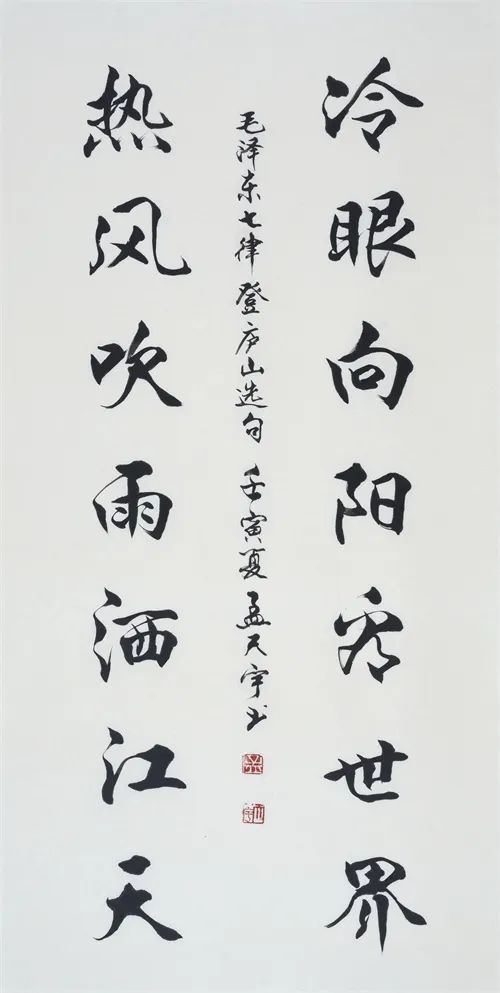 冷眼向阳看世界
热风吹雨洒江天
毛泽东七律登庐山选句 壬寅夏孟天宇书